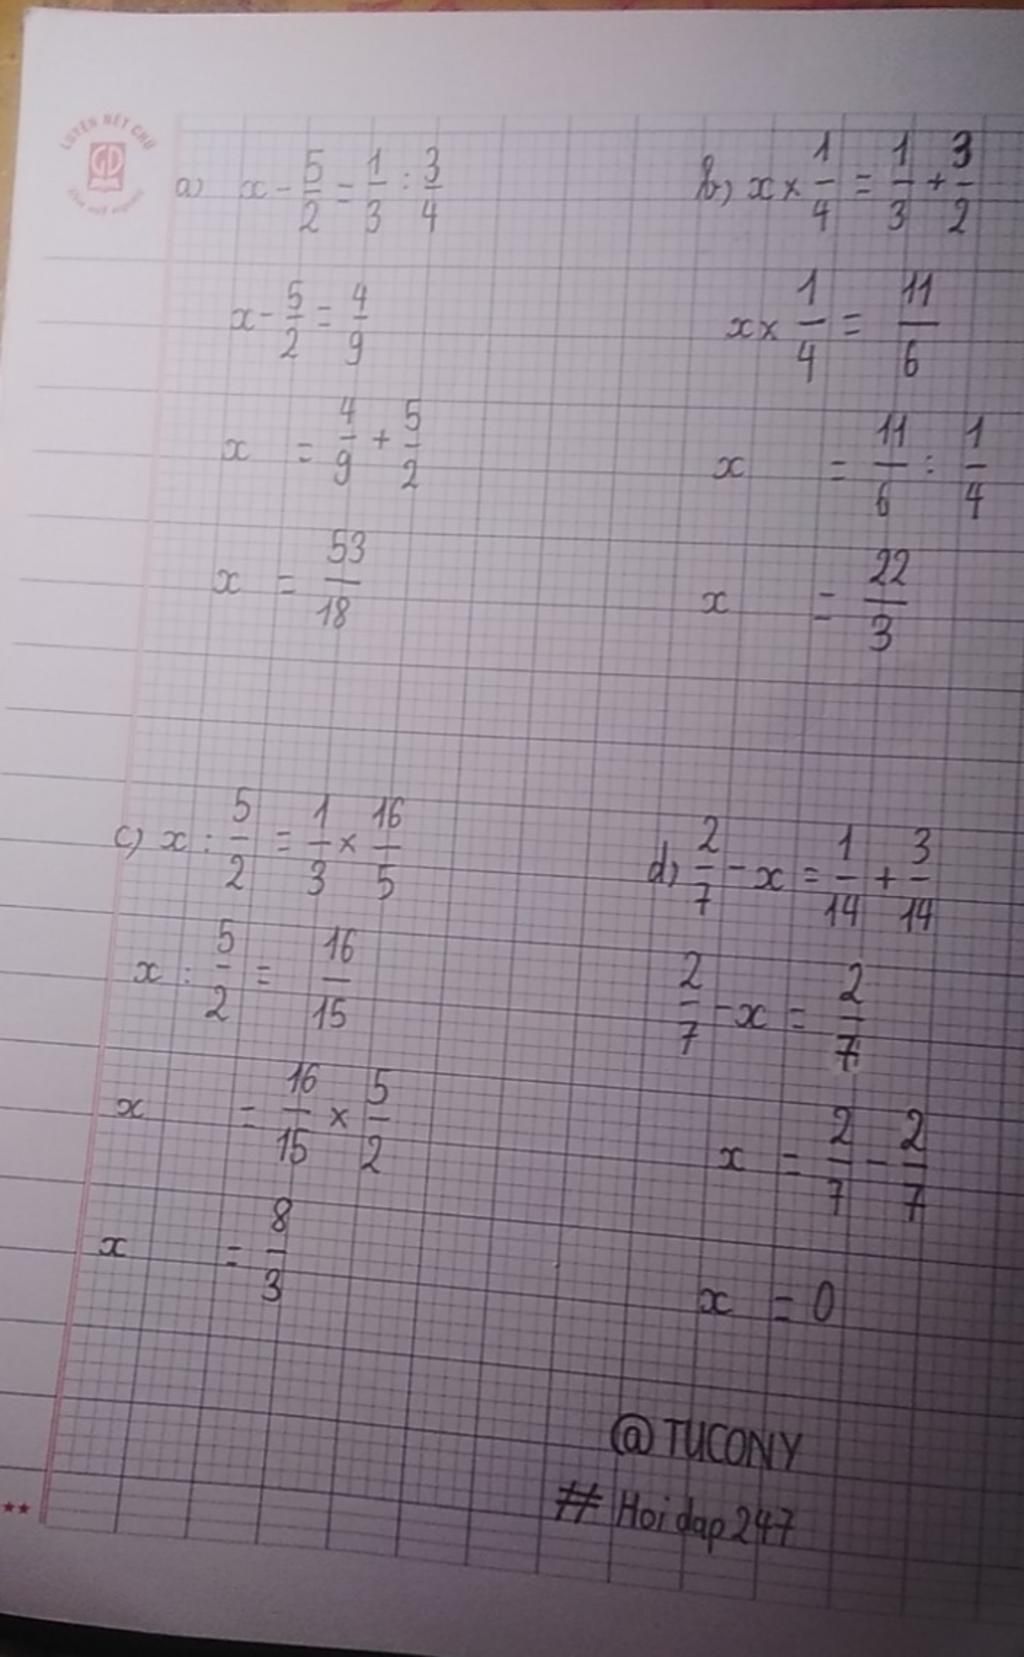 LUYỆN NÉT CHỮ
GD
a) x - 5/2 = 1/3 : 3/4
x - 5/2 = 4/9
x = 4/9 + 5/2
x = 53/18
b) x × 1/4 = 1/3 + 3/2
x × 1/4 = 11/6
x = 11/6 : 1/4
x = 22/3
c) x : 5/2 = 1/3 × 16/5
x : 5/2 = 16/15
x = 16/15 × 5/2
x = 8/3
d) 2/7 - x = 1/14 + 3/14
2/7 - x = 2/7
x = 2/7 - 2/7
x = 0
@TUCONY
# Hoidap247